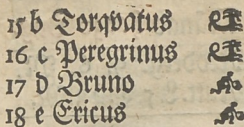 15 b Torqvatus
16 c Peregrinus
17 d Bruno
18 e Ericus